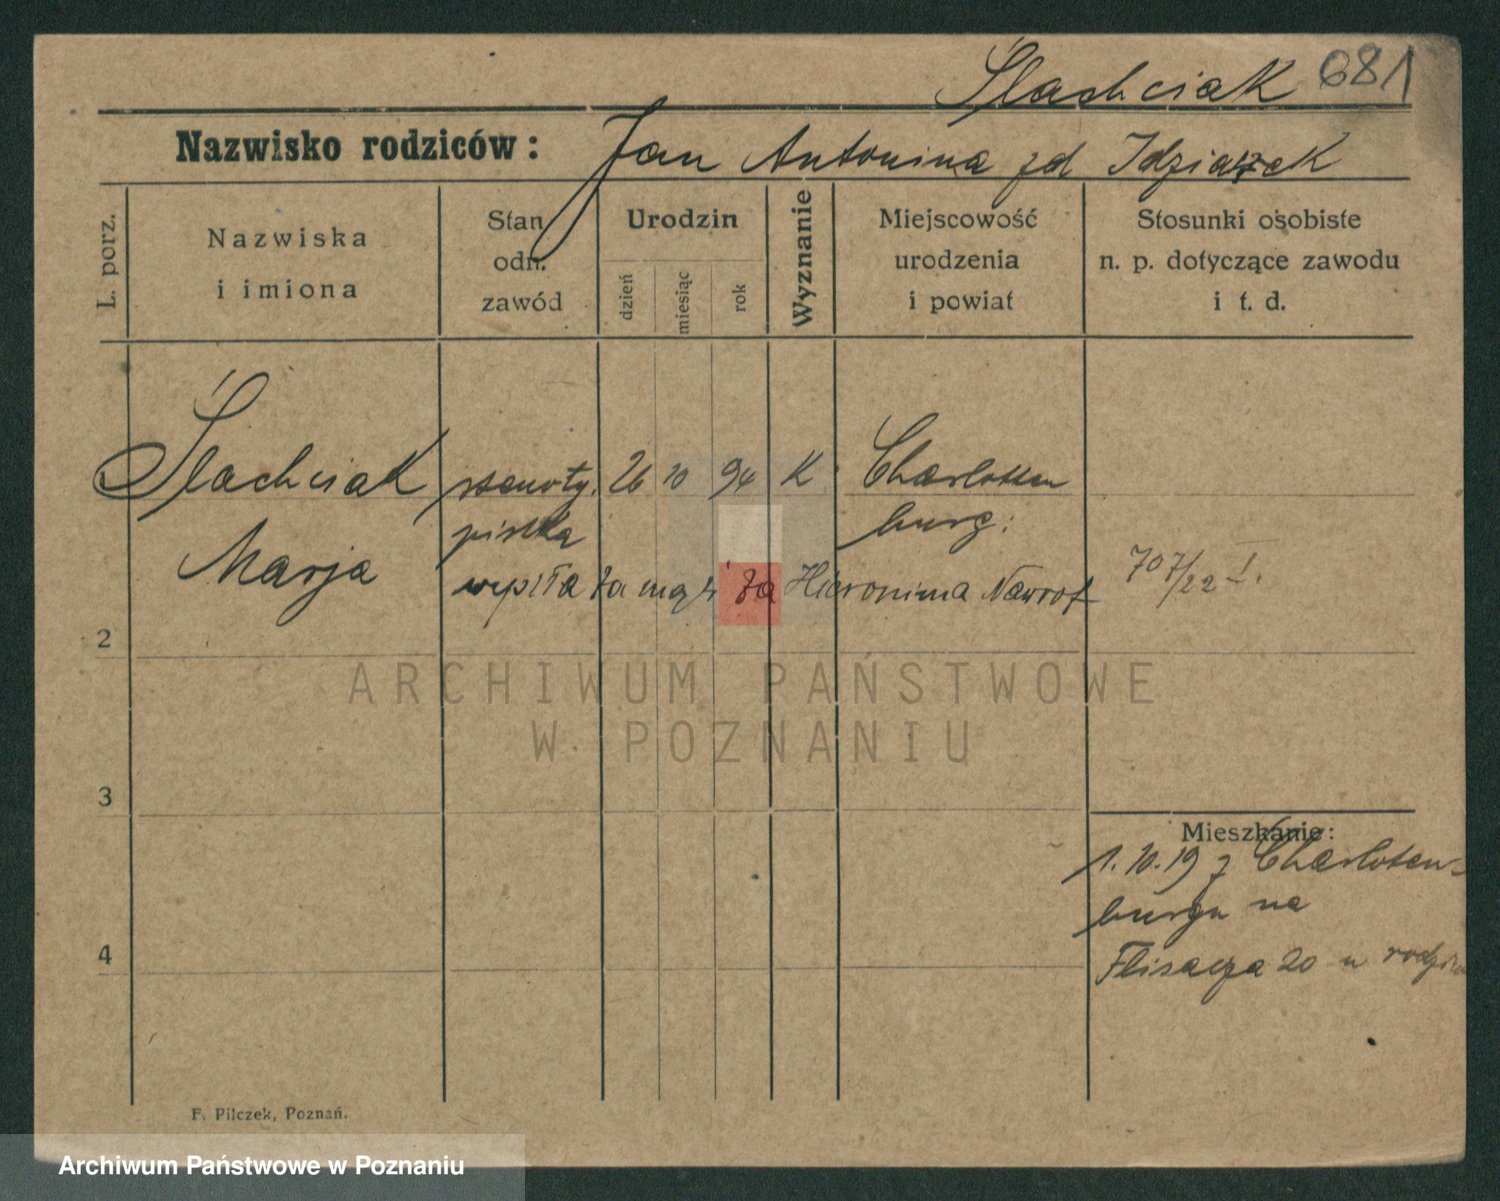 Ślachciak 681
Nazwisko rodziców: Jan Antonina zd Idziaszek
L. porz.
Nazwiska
i imiona
Stan
odn.
zawód
Urodzin
dzień
miesiąc
rok
Wyznanie
Miejscowość
urodzenia
i powiat
Stosunki osobiste
n. p. dotyczące zawodu
i t. d.
1 Ślachciak stenoty. 26 10 94 K Charlotten
pistka burg.
Marja
wyszła za mąż za Hieronima Nawrot 707/22 I.
2
ARCHIWUM PAŃSTWOWE
W POZNANIU
3
Mieszkanie:
1.10.19 z Charloten-
burga na
4 Flisacza 20 u rodzi
F. Pilczek, Poznań.
Archiwum Państwowe w Poznaniu